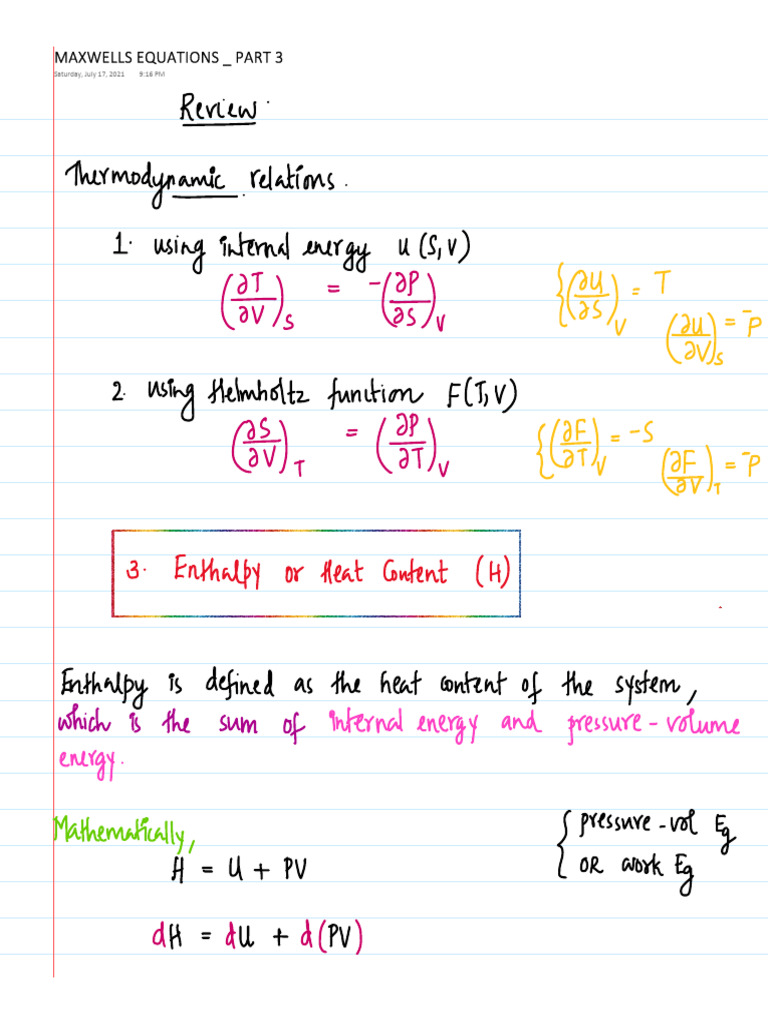 MAXWELLS EQUATIONS _ PART 3
Saturday, July 17, 2021 9:16 PM
Review.
Thermodynamic relations.
1. using internal energy U(S,V)
(∂T/∂V)_S = -(∂P/∂S)_V {(∂U/∂S)_V = T
(∂U/∂V)_S = -P
2. using Helmholtz function F(T,V)
(∂S/∂V)_T = (∂P/∂T)_V {(∂F/∂T)_V = -S
(∂F/∂V)_T = -P
3. Enthalpy or Heat Content (H)
Enthalpy is defined as the heat content of the system,
which is the sum of internal energy and pressure-volume
energy.
Mathematically,
{pressure-vol Eg
H = U + PV
OR work Eg
dH = dU + d(PV)